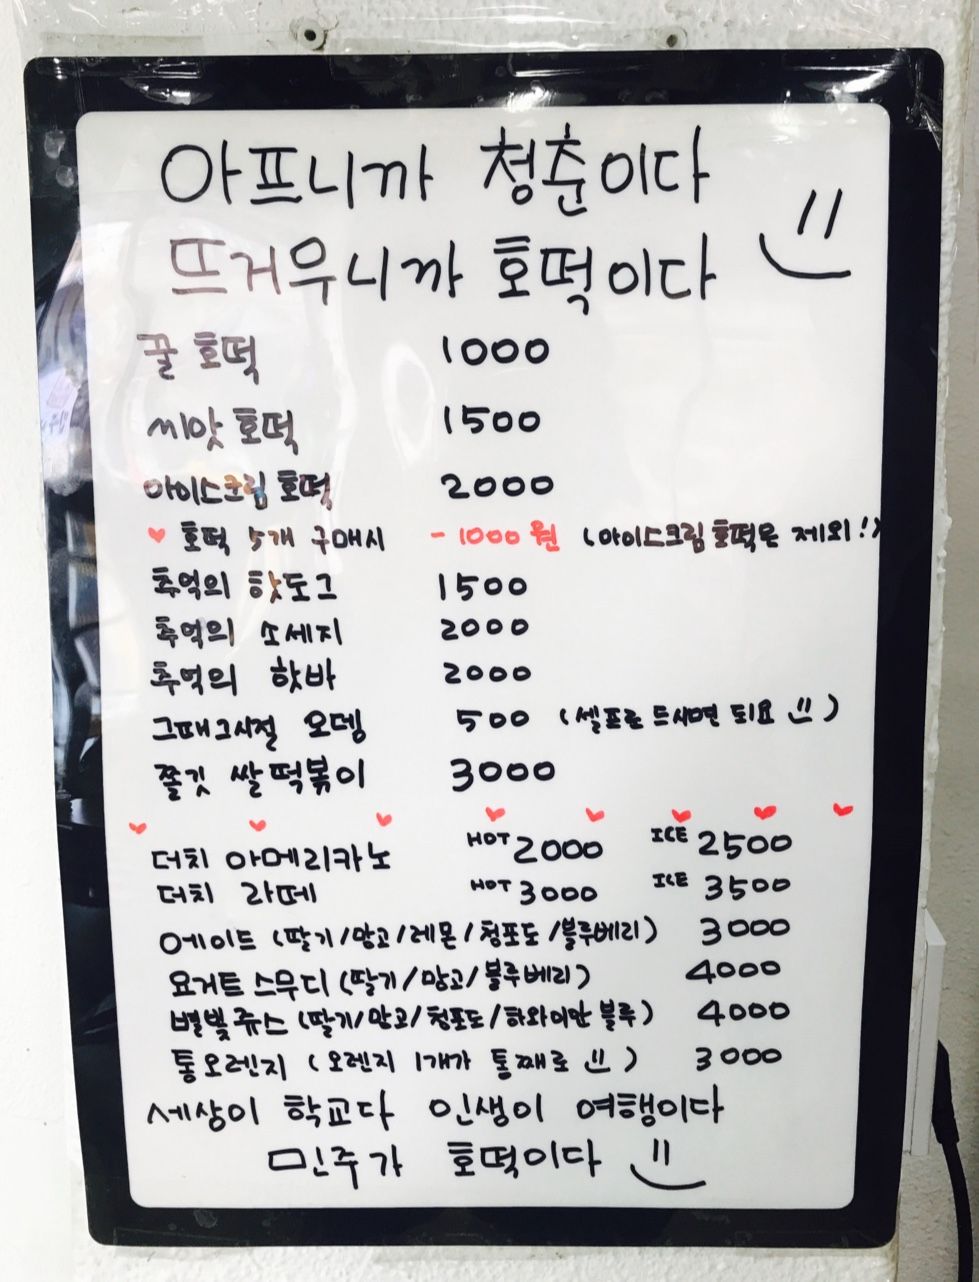 아프니까 청춘이다
뜨거우니까 호떡이다
꿀 호떡 1000
씨앗 호떡 1500
아이스크림 호떡 2000
♥ 호떡 5개 구매시 -1000원 (아이스크림 호떡은 제외!)
추억의 핫도그 1500
추억의 소세지 2000
추억의 핫바 2000
그때그시절 오뎅 500 (셀프로 드시면 되요)
쫄깃 쌀떡볶이 3000
더치 아메리카노 HOT 2000 ICE 2500
더치 라떼 HOT 3000 ICE 3500
에이드 (딸기/망고/레몬/청포도/블루베리) 3000
요거트 스무디 (딸기/망고/블루베리) 4000
별빛쥬스 (딸기/망고/청포도/하와이안 블루) 4000
통오렌지 (오렌지 1개가 통째로) 3000
세상이 학교다 인생이 여행이다
민주가 호떡이다